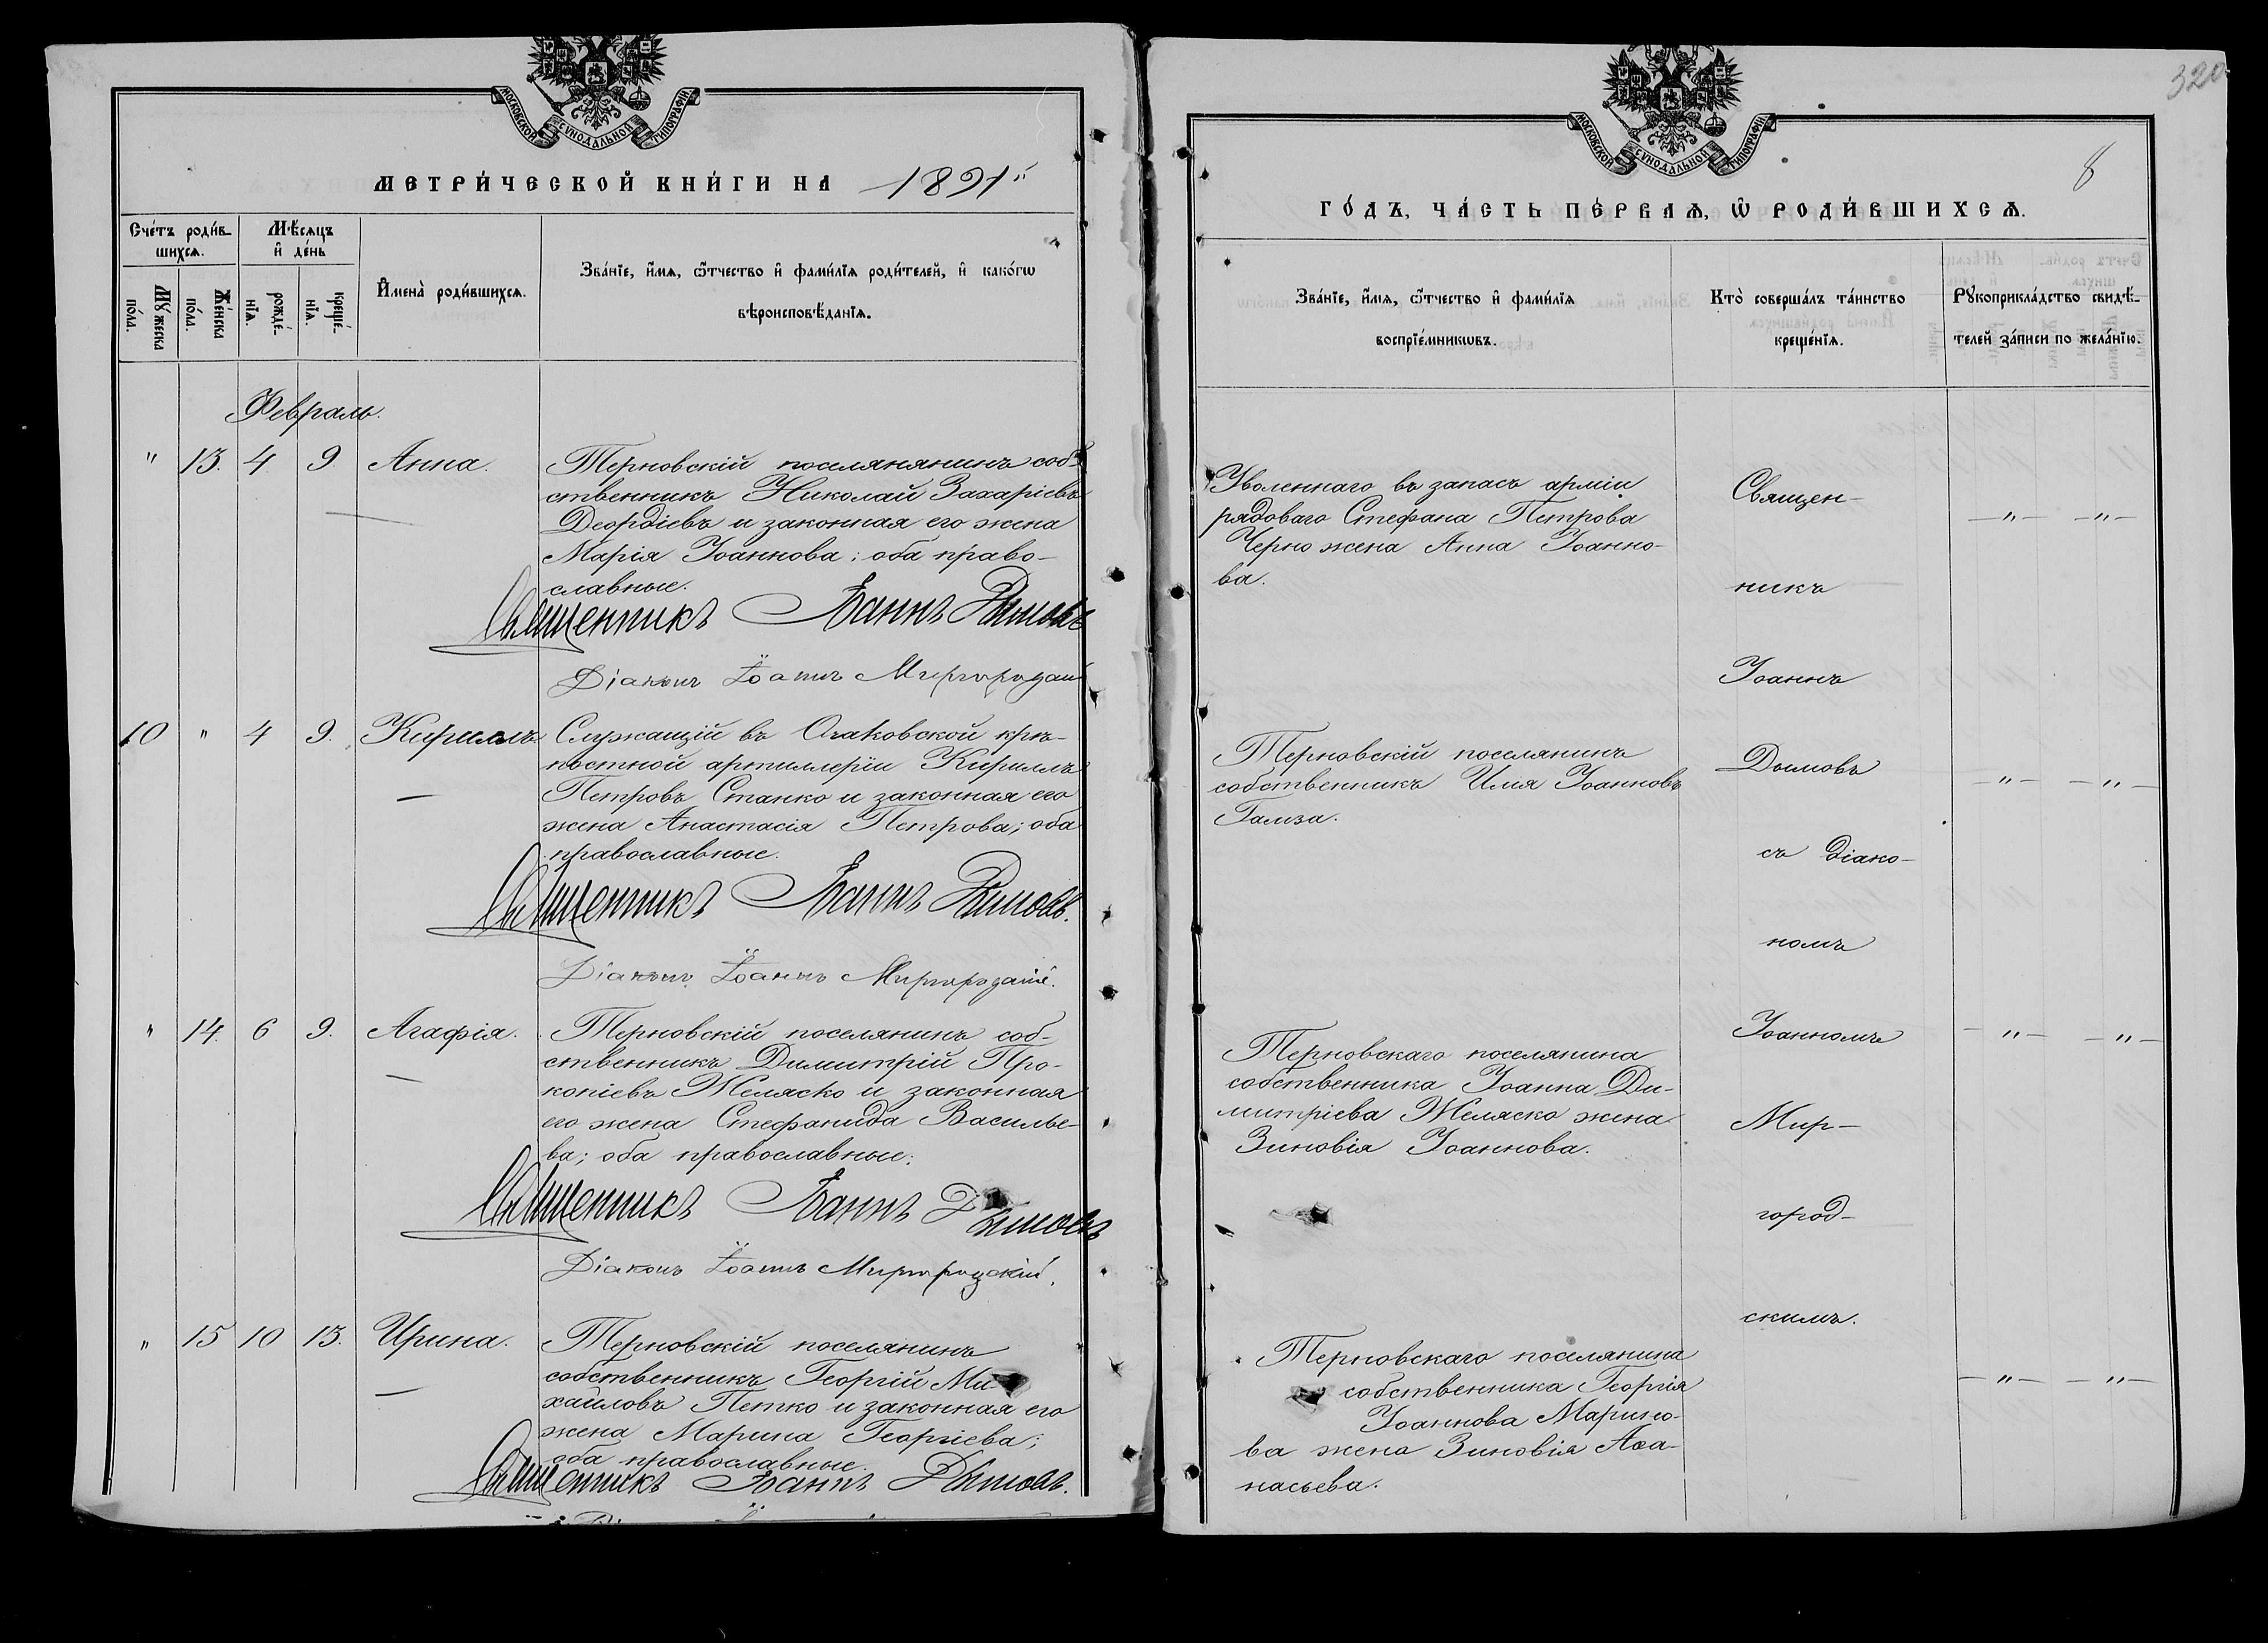 МОСКОВСКОЙ СѴНОДАЛЬНОЙ ТИПОГРАФІИ
МЕТРИ́ЧЕСКОЙ КНИ́ГИ НА 1891й
Сче́тъ роди́в-
шихсѧ.
Мѣ́сѧцъ
и҆ де́нь
Мꙋ́жеска
по́ла.
Же́нска
по́ла.
рожде́-
нїѧ.
креще́-
нїѧ.
И҆мена̀ роди́вшихсѧ.
Зва́нїе, и҆́мѧ, ѻ҆́тчество и҆ фами́лїѧ роди́телей, и҆ како́гѡ
вѣроисповѣ́данїѧ.
Февраль.
" 13. 4 9 Анна.
Терновскій поселянянинъ соб-
ственникъ Николай Захаріевъ
Деордіевъ и законная его жена
Марія Іоаннова; оба право-
славные.
Священникъ Іоаннъ Дымовъ
Діаконъ Іоаннъ Миргородскій
10 " 4 9. Кириллъ
Служащій въ Очаковской крѣ-
постной артиллеріи Кириллъ
Петровъ Станко и законная его
жена Анастасія Петрова; оба
православные.
Священникъ Іоаннъ Дымовъ.
Діаконъ Іоаннъ Миргородскій.
" 14. 6 9. Агафія.
Терновскій поселянинъ соб-
ственникъ Димитрій Про-
копіевъ Желяско и законная
его жена Стефанида Василье-
ва; оба православные.
Священникъ Іоаннъ Дымовъ
Діаконъ Іоаннъ Миргородскій.
" 15 10 13. Ирина.
Терновскій поселянинъ
собственникъ Георгій Ми-
хайловъ Петко и законная его
жена Марина Георгіева;
оба православные.
Священникъ Іоаннъ Дымовъ.
320
8
МОСКОВСКОЙ СѴНОДАЛЬНОЙ ТИПОГРАФІИ
ГО́ДЪ, ЧА́СТЬ ПЕ́РВАѦ, Ѡ҆ РОДИ́ВШИХСѦ.
Зва́нїе, и҆́мѧ, ѻ҆́тчество и҆ фами́лїѧ
воспрїе́мникѡвъ.
Кто̀ соверша́лъ та́инство
креще́нїѧ.
Рꙋкоприкла́дство свидѣ́-
телей за́писи по жела́нїю.
Уволеннаго въ запасъ арміи
рядоваго Стефана Петрова
Черно жена Анна Іоанно-
ва.
Терновскій поселянинъ
собственникъ Илія Іоанновъ
Гамза.
Терновскаго поселянина
собственника Іоанна Ди-
митріева Желяско жена
Зиновія Іоаннова.
Терновскаго поселянина
собственника Георгія
Іоаннова Марино-
ва жена Зиновія Аѳа-
насьева.
Священ-
никъ
Іоаннъ
Дымовъ
съ діако-
номъ
Іоанномъ
Мир-
город-
скимъ.
— " — — " —
— " — — " —
— " — — " —
— " — — " —